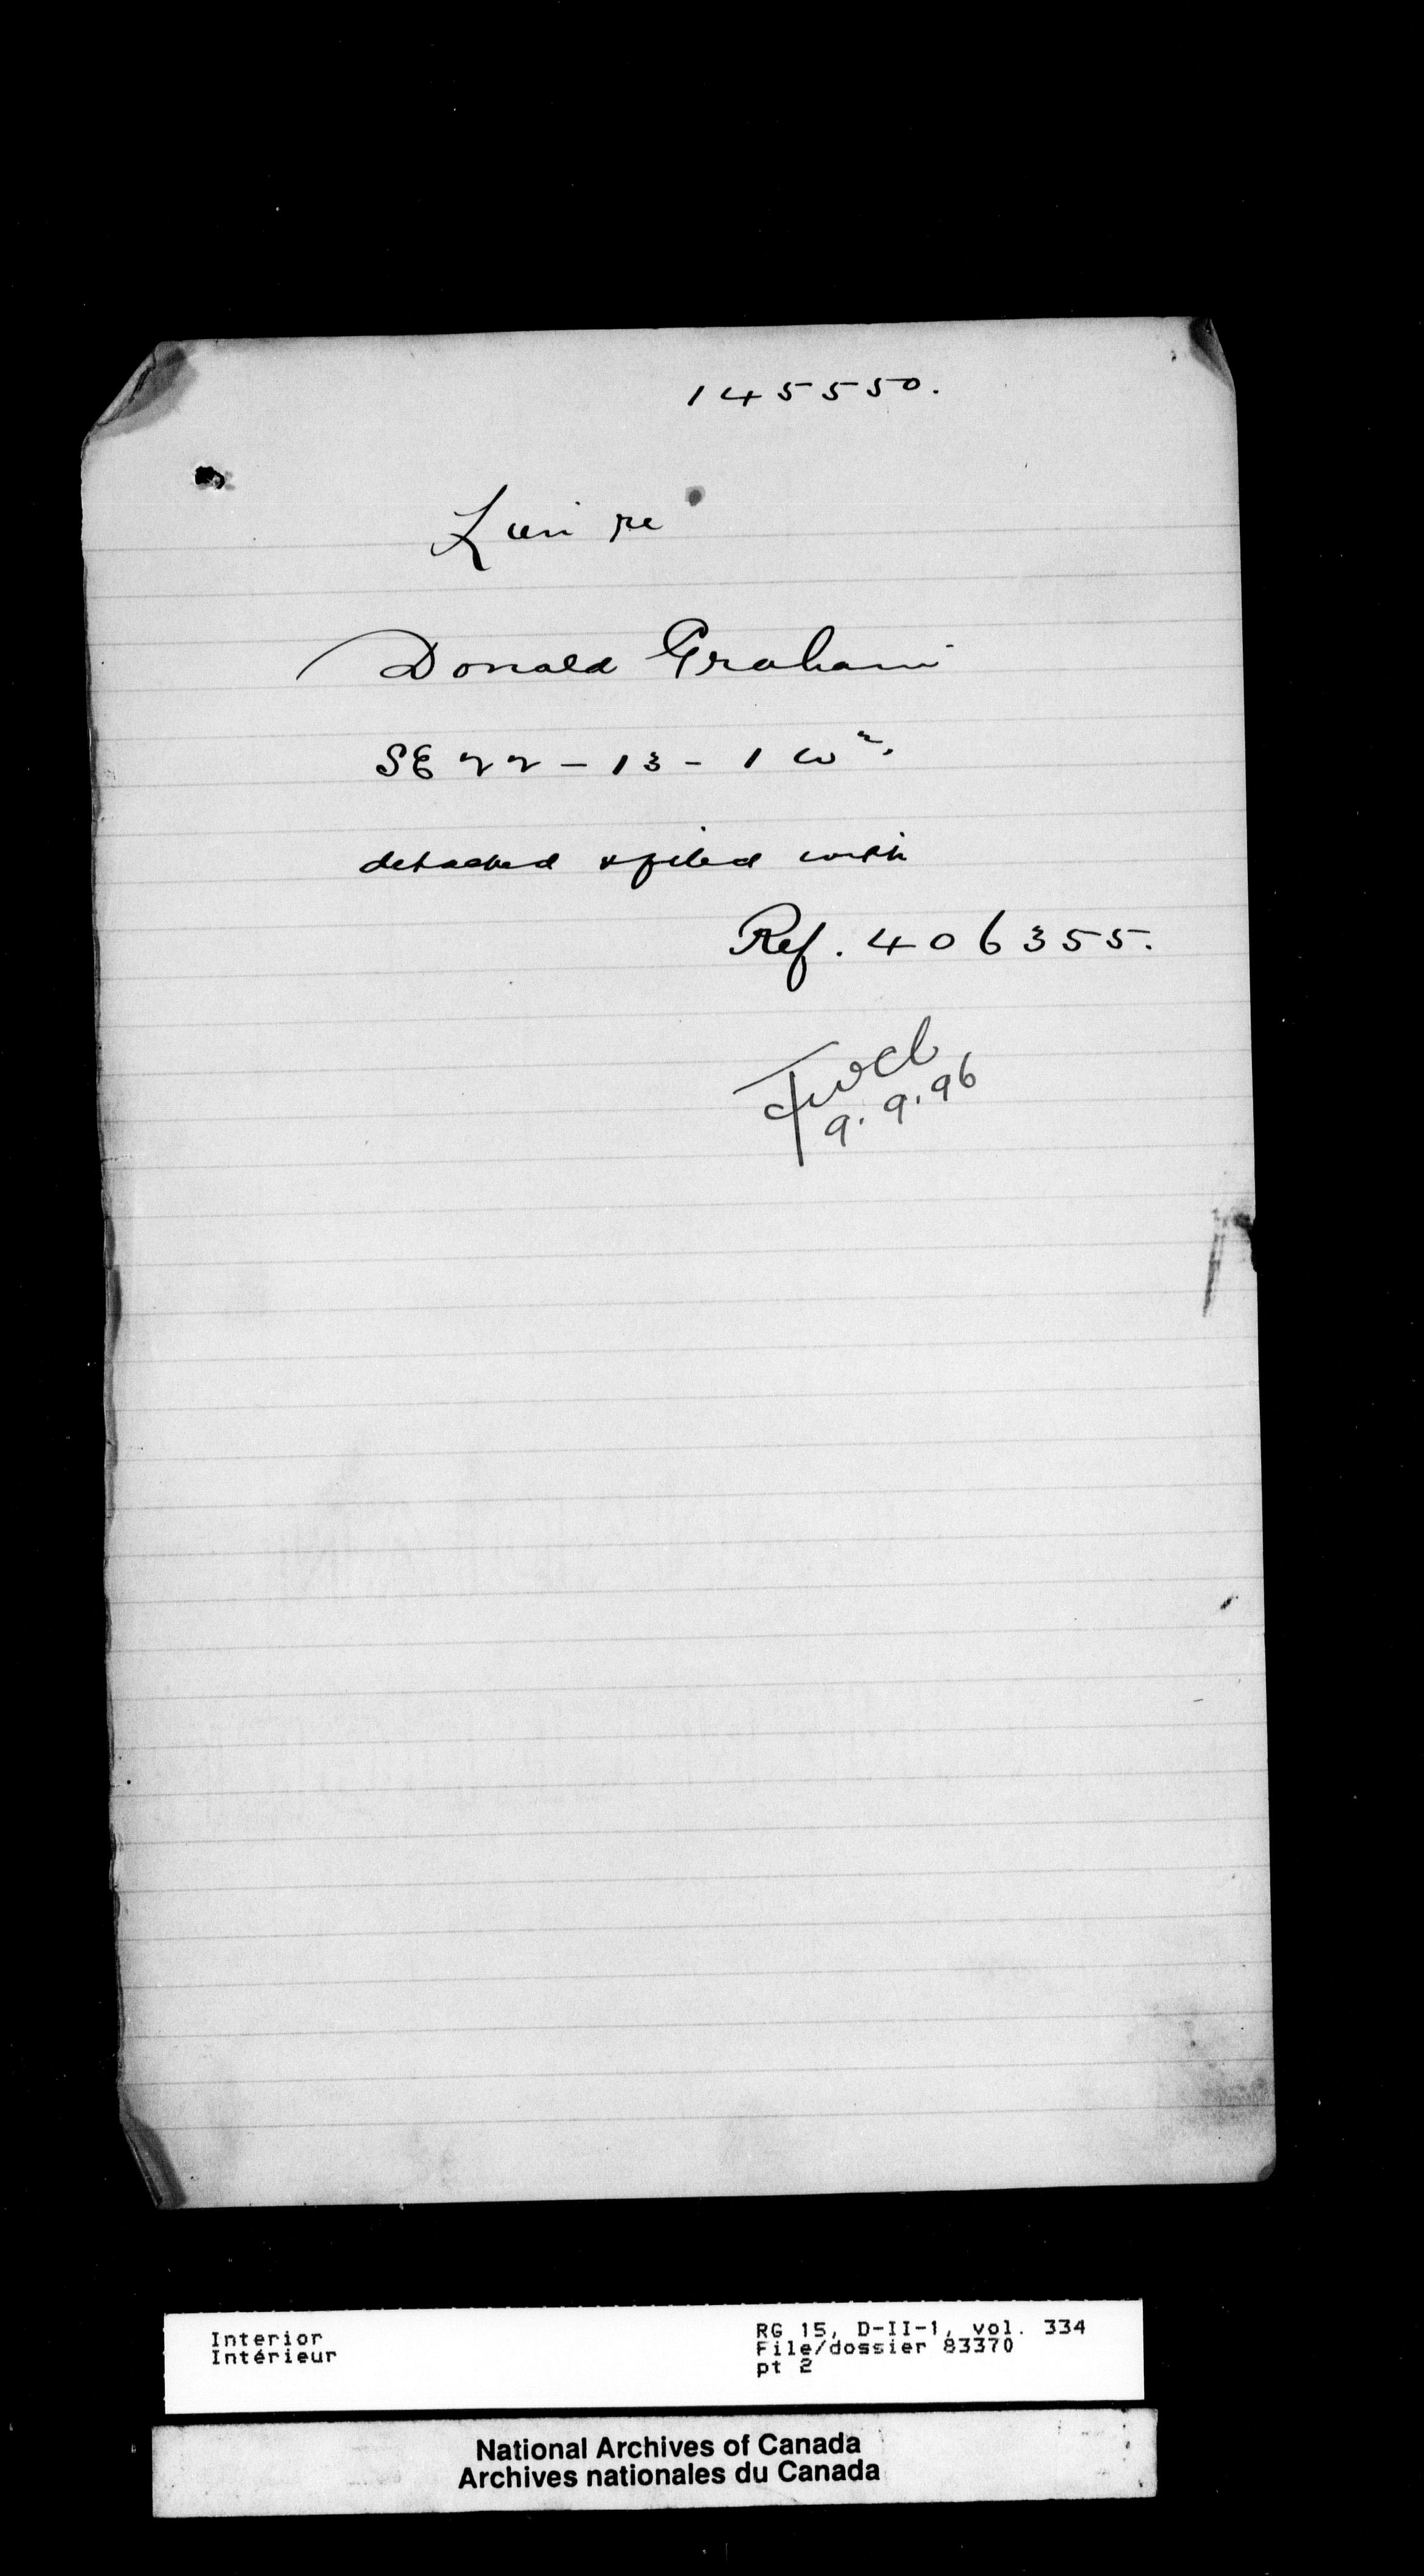 145550.
Lien re
Donald Graham
SE 22 - 13 - 1 W 2.
detached & filed with
Ref. 406355.
9.9.96
Interior
Intérieur
RG 15, D-II-1, vol. 334
File/dossier 83370
pt 2
National Archives of Canada
Archives nationales du Canada